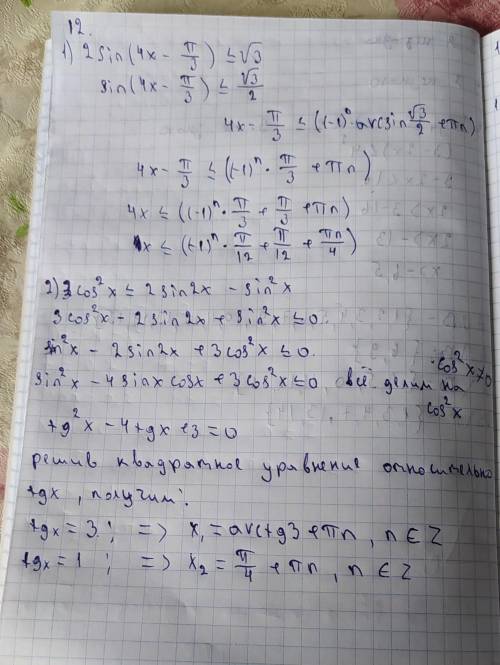 12.
1) 2sin(4x - π/3) ≤ √3
sin(4x - π/3) ≤ √3/2
4x - π/3 ≤ ((-1)ⁿ · arcsin √3/2 + πn)
4x - π/3 ≤ (-1)ⁿ · π/3 + πn)
4x ≤ ((-1)ⁿ · π/3 + π/3 + πn)
x ≤ (-1)ⁿ · π/12 + π/12 + πn/4)
2) 3cos²x ≤ 2sin2x - sin²x
3cos²x - 2sin2x + sin²x ≤ 0.
sin²x - 2sin2x + 3cos²x ≤ 0.
sin²x - 4sinx cosx + 3cos²x ≤ 0 всё делим на cos²x · cos²x ≠ 0
tg²x - 4tgx + 3 = 0
решив квадратное уравнение относительно
tgx, получим:
tgx = 3; => x₁ = arctg3 + πn, n ∈ Z
tgx = 1; => x₂ = π/4 + πn, n ∈ Z